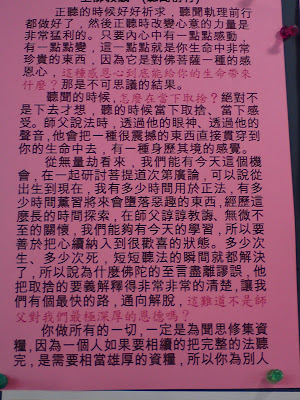 正聽的時候好好祈求，聽聞軌理前行
都做好了，然後正聽時改變心意的力量是
非常猛利的。只要內心中有一點點感動，
有一點點變，這一點點就是你生命中非常
珍貴的東西，因為它是對佛菩薩一種的感
恩心，這種感恩心到底能給你的生命帶來
什麼？那是不可思議的結果。
聽聞的時候，怎麼在當下取捨？絕對不
是下去才想，聽的時候當下取捨、當下感
受。師父說法時，透過他的眼神、透過他的
聲音，他會把一種很震撼的東西直接貫穿到
你的生命中去，有一種身歷其境的感覺。
從無量劫看來，我們能有今天這個機
會，在一起研討菩提道次第廣論，可以說從
出生到現在，我有多少時間用於正法，有多
少時間薰習將來會墮落惡趣的東西，經歷這
麼長的時間探索，在師父諄諄教誨、無微不
至的關懷，我們能夠有今天的學習，所以要
善於把心續納入到很歡喜的狀態。多少次
生、多少次死，短短聽法的瞬間就都解決
了，所以說為什麼佛陀的至言盡離謬誤，他
把取捨的要義解釋得非常非常的清楚，讓我
們有個最快的路，通向解脫，這難道不是師
父對我們最極深厚的恩德嗎？
你做所有的一切，一定是為聞思修集資
糧，因為一個人如果要相續的把完整的法聽
完，是需要相當雄厚的資糧，所以你為別人